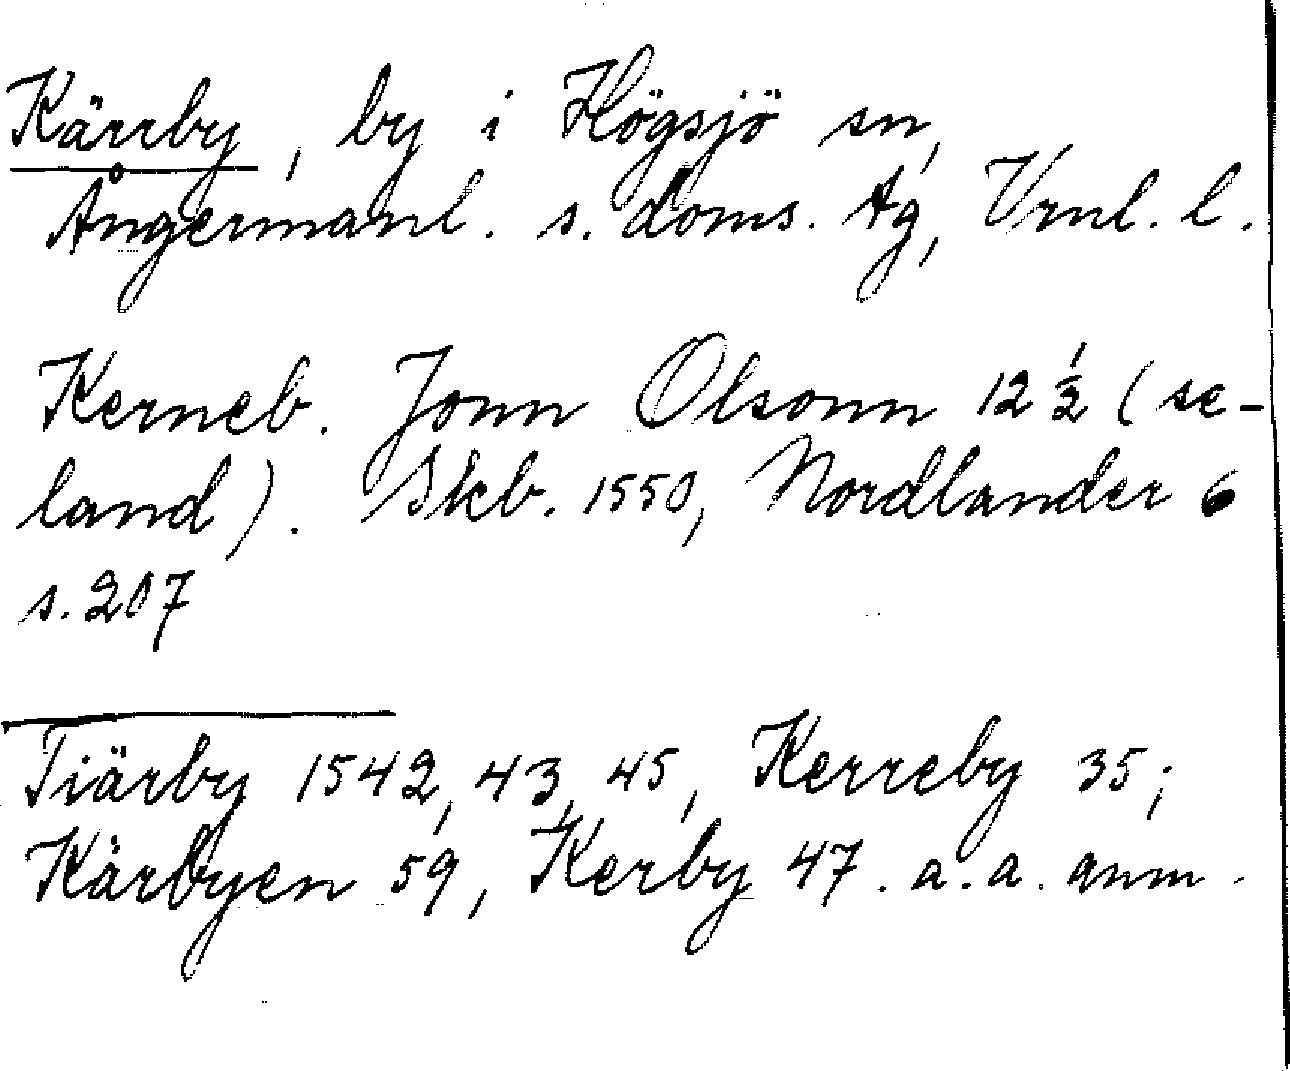 Kärrby, by i Högsjö sn,
Ångermanl. s. doms. tg, Vrnl. l.
Kerneb. Jonn Olsonn 12 1/2 (se-
land). Skb. 1550, Nordlander 6
s. 207
Tiärby 1542, 43, 45, Kerreby 35;
Kärbyen 59, Kerby 47. a. a. anm.